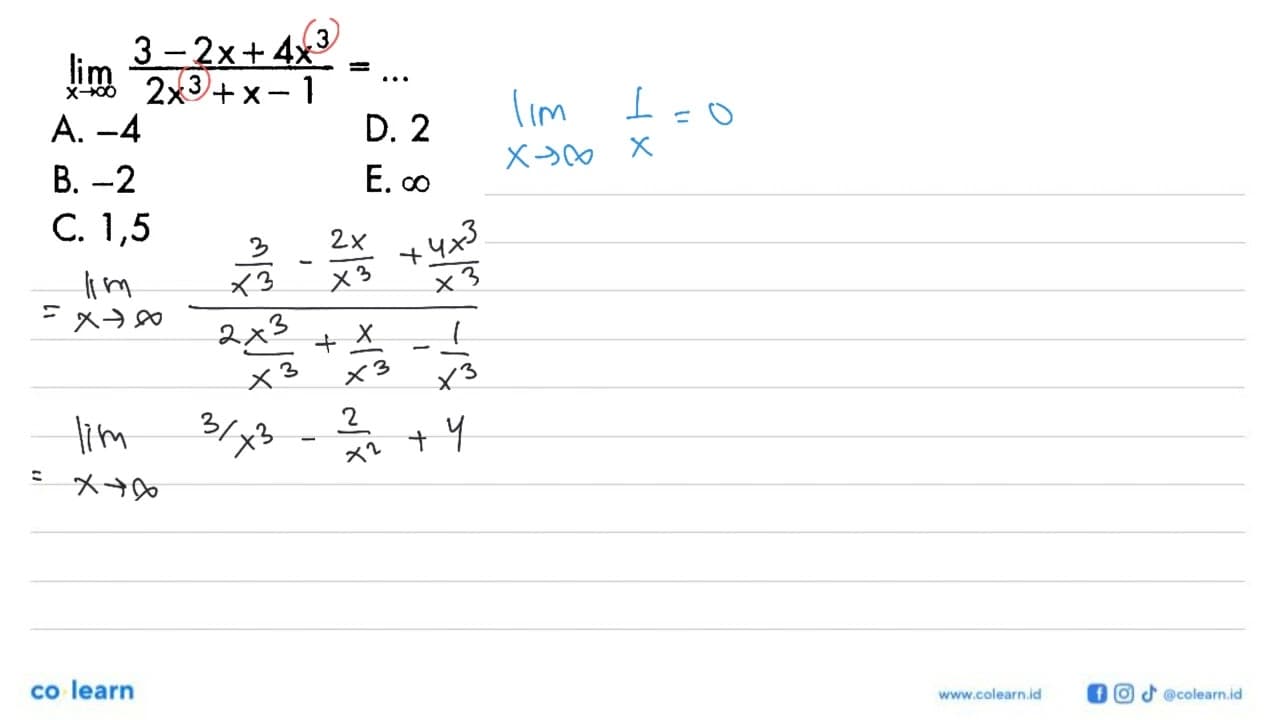 lim x→∞ (3 – 2x + 4x³)/(2x³ + x – 1) = ...
A. –4 D. 2
B. –2 E. ∞
C. 1,5
lim x→∞ 1/x = 0
= lim x→∞ (3/x³ - 2x/x³ + 4x³/x³)/(2x³/x³ + x/x³ - 1/x³)
= lim x→∞ 3/x³ - 2/x² + 4
co learn
www.colearn.id @colearn.id